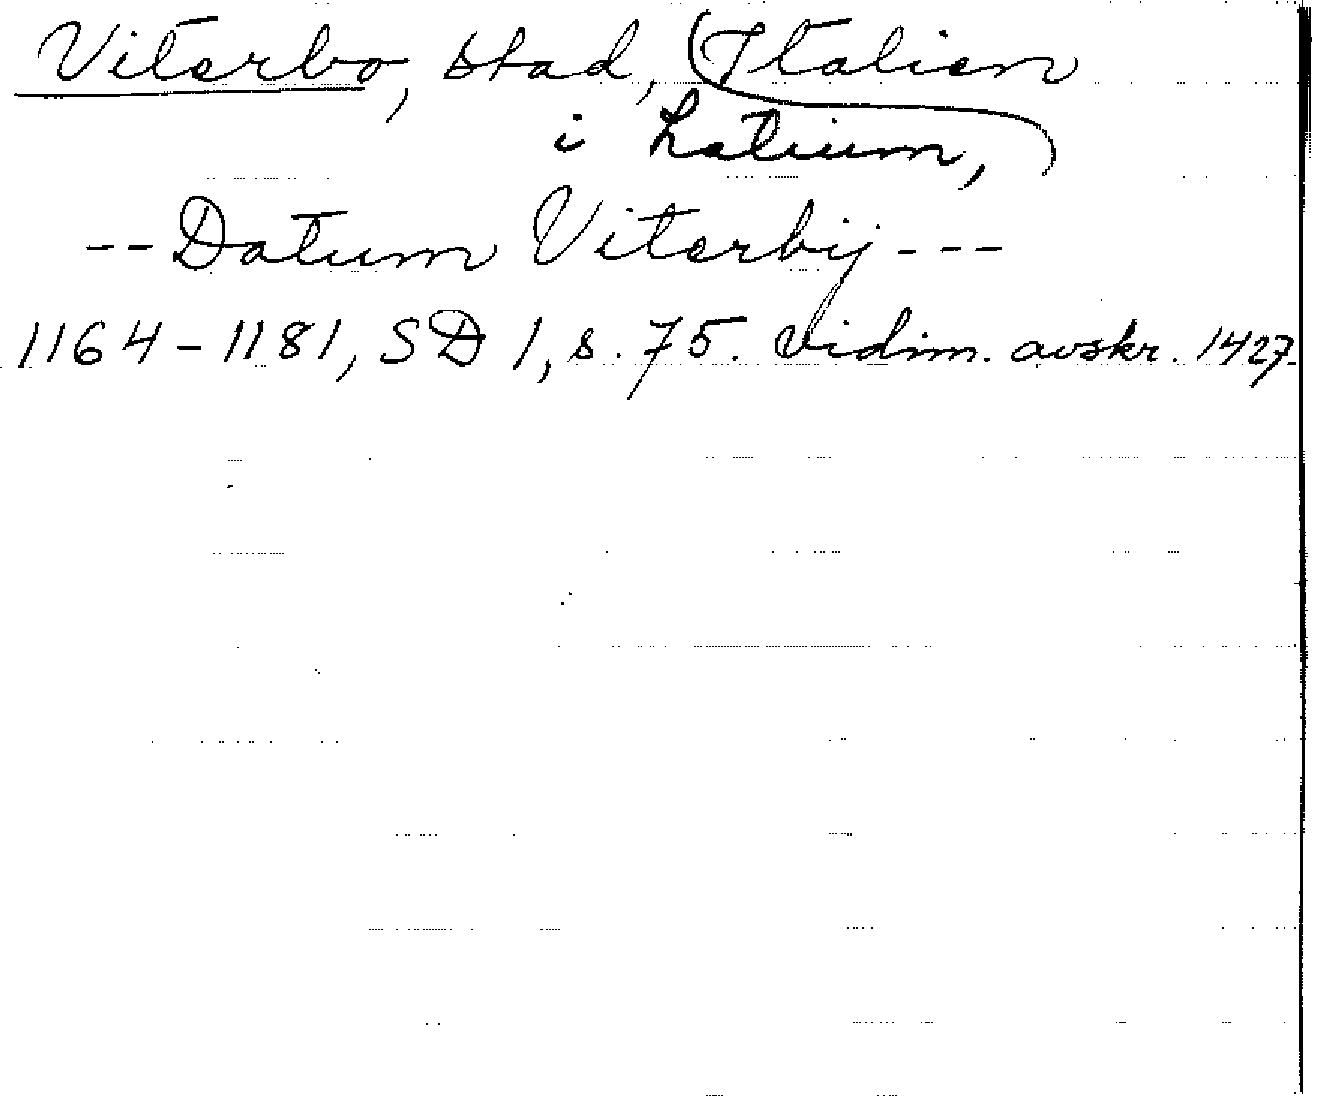 Viterbo, stad, (Italien
i Latium,
-- Datum Viterbij ---
1164-1181, SD 1, s. 75. vidim. avskr. 1427.